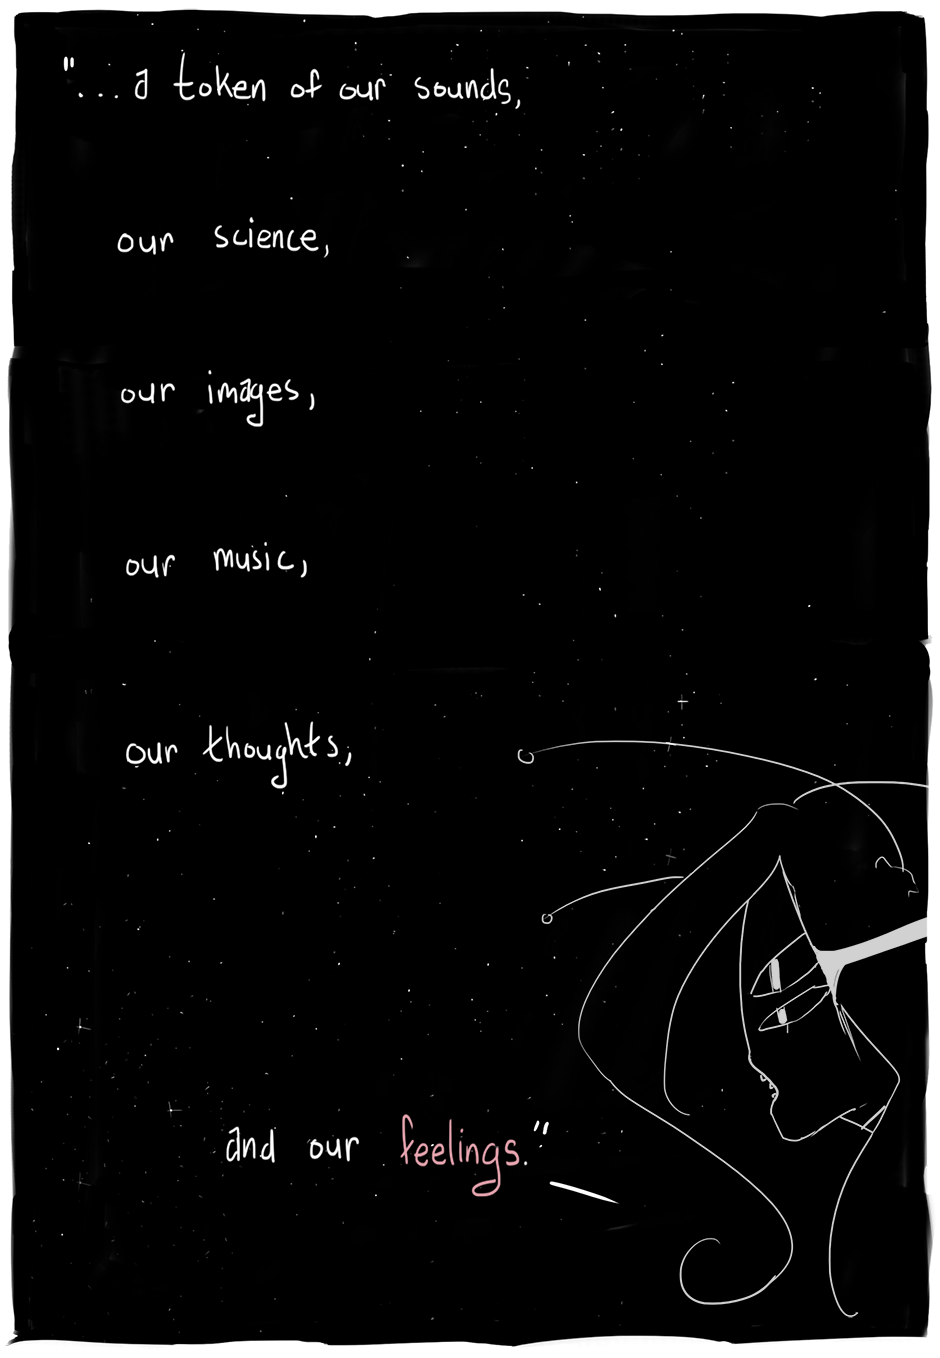 "...a token of our sounds,
our science,
our images,
our music,
our thoughts,
and our feelings."